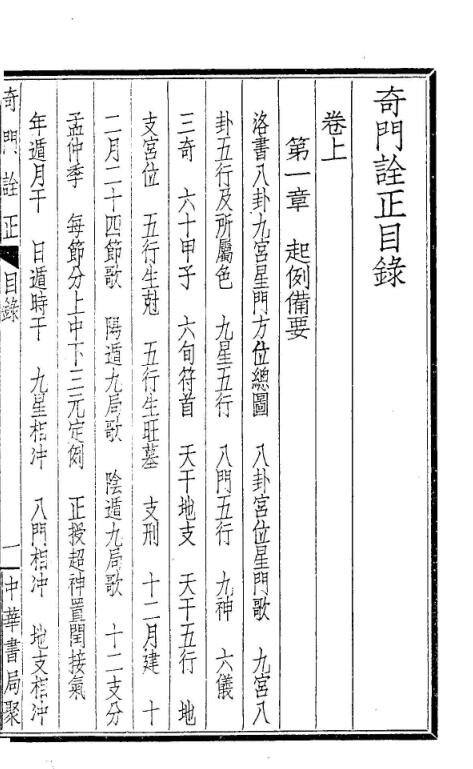 奇門詮正目錄
卷上
第一章　起例備要
洛書八卦九宮星門方位總圖　八卦宮位星門歌　九宮八
卦五行及所屬色　九星五行　八門五行　九神　六儀
三奇　六十甲子　六旬符首　天干地支　天干五行　地
支宮位　五行生尅　五行生旺墓　支刑　十二月建　十
二月二十四節歌　陽遁九局歌　陰遁九局歌　十二支分
孟仲季　每節分上中下三元定例　正授超神置閏接氣
年遁月干　日遁時干　九星相沖　八門相沖　地支相沖
奇門詮正　目錄　一　中華書局聚